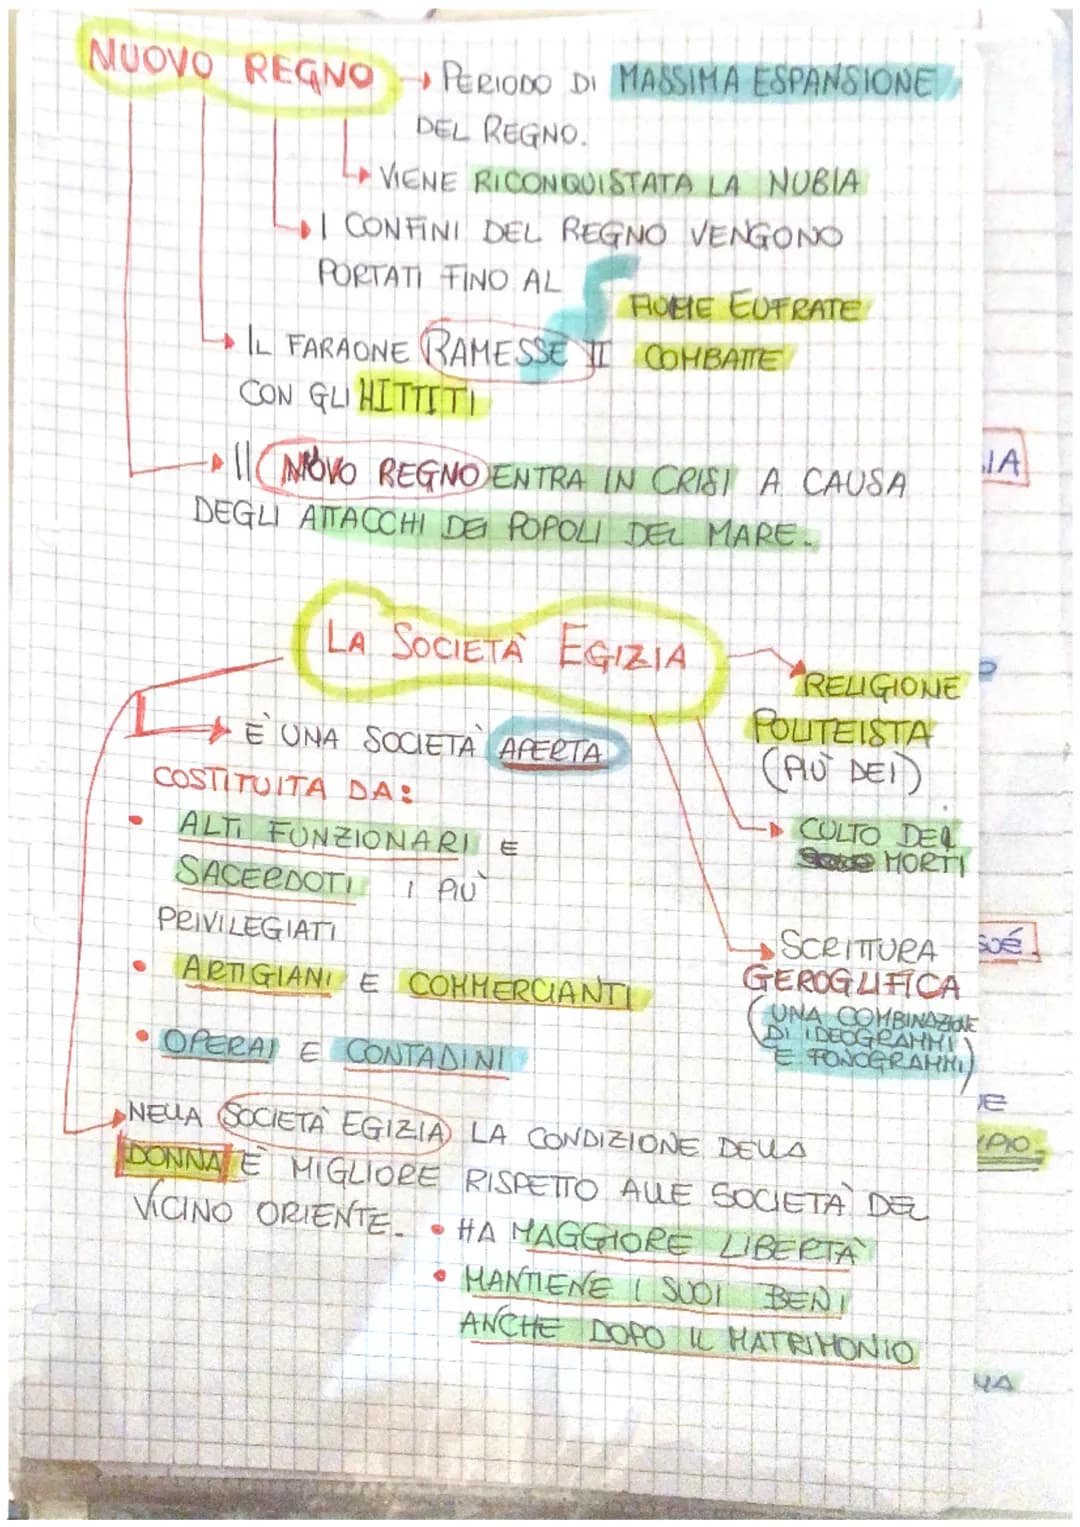 NUOVO REGNO → PERIODO DI MASSIMA ESPANSIONE
DEL REGNO.
VIENE RICONQUISTATA LA NUBIA
I CONFINI DEL REGNO VENGONO
PORTATI FINO AL
FIUME EUFRATE
IL FARAONE RAMESSE II COMBATTE
CON GLI HITTITI
Il NUOVO REGNO ENTRA IN CRISI A CAUSA
DEGLI ATTACCHI DEI POPOLI DEL MARE.
LA SOCIETÀ EGIZIA
È UNA SOCIETÀ APERTA
COSTITUITA DA:
• ALTI FUNZIONARI E
SACERDOTI I PIÙ
PRIVILEGIATI
• ARTIGIANI E COMMERCIANTI
• OPERAI E CONTADINI
RELIGIONE
POLITEISTA
(PIÙ DEI)
CULTO DEI
MORTI
SCRITTURA
GEROGLIFICA
(UNA COMBINAZIONE
DI IDEOGRAMMI
E FONOGRAMMI)
NELLA SOCIETÀ EGIZIA LA CONDIZIONE DELLA
DONNA È MIGLIORE RISPETTO ALLE SOCIETÀ DEL
VICINO ORIENTE.
• HA MAGGIORE LIBERTÀ
• MANTIENE I SUOI BENI
ANCHE DOPO IL MATRIMONIO